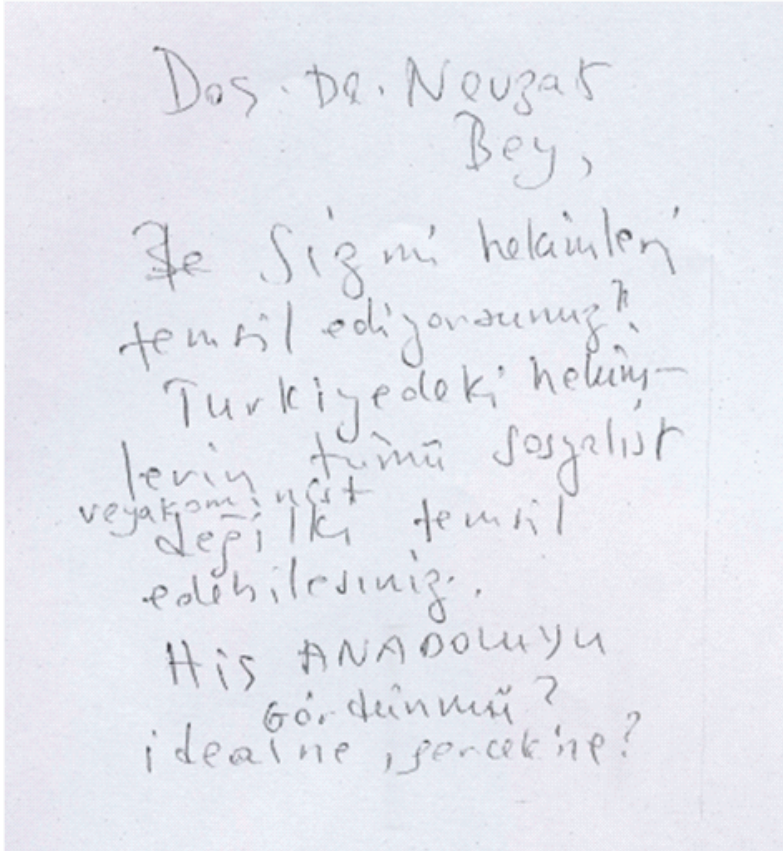 Doç. Dr. Nevzat
Bey,
Siz mi hekimleri
temsil ediyorsunuz?
Türkiyedeki hekim-
lerin tümü sosyalist
veya kominist
değilki temsil
edebilesiniz.
Hiç ANADOLUYU
Gördünmü?
ideal ne, gerçek ne?